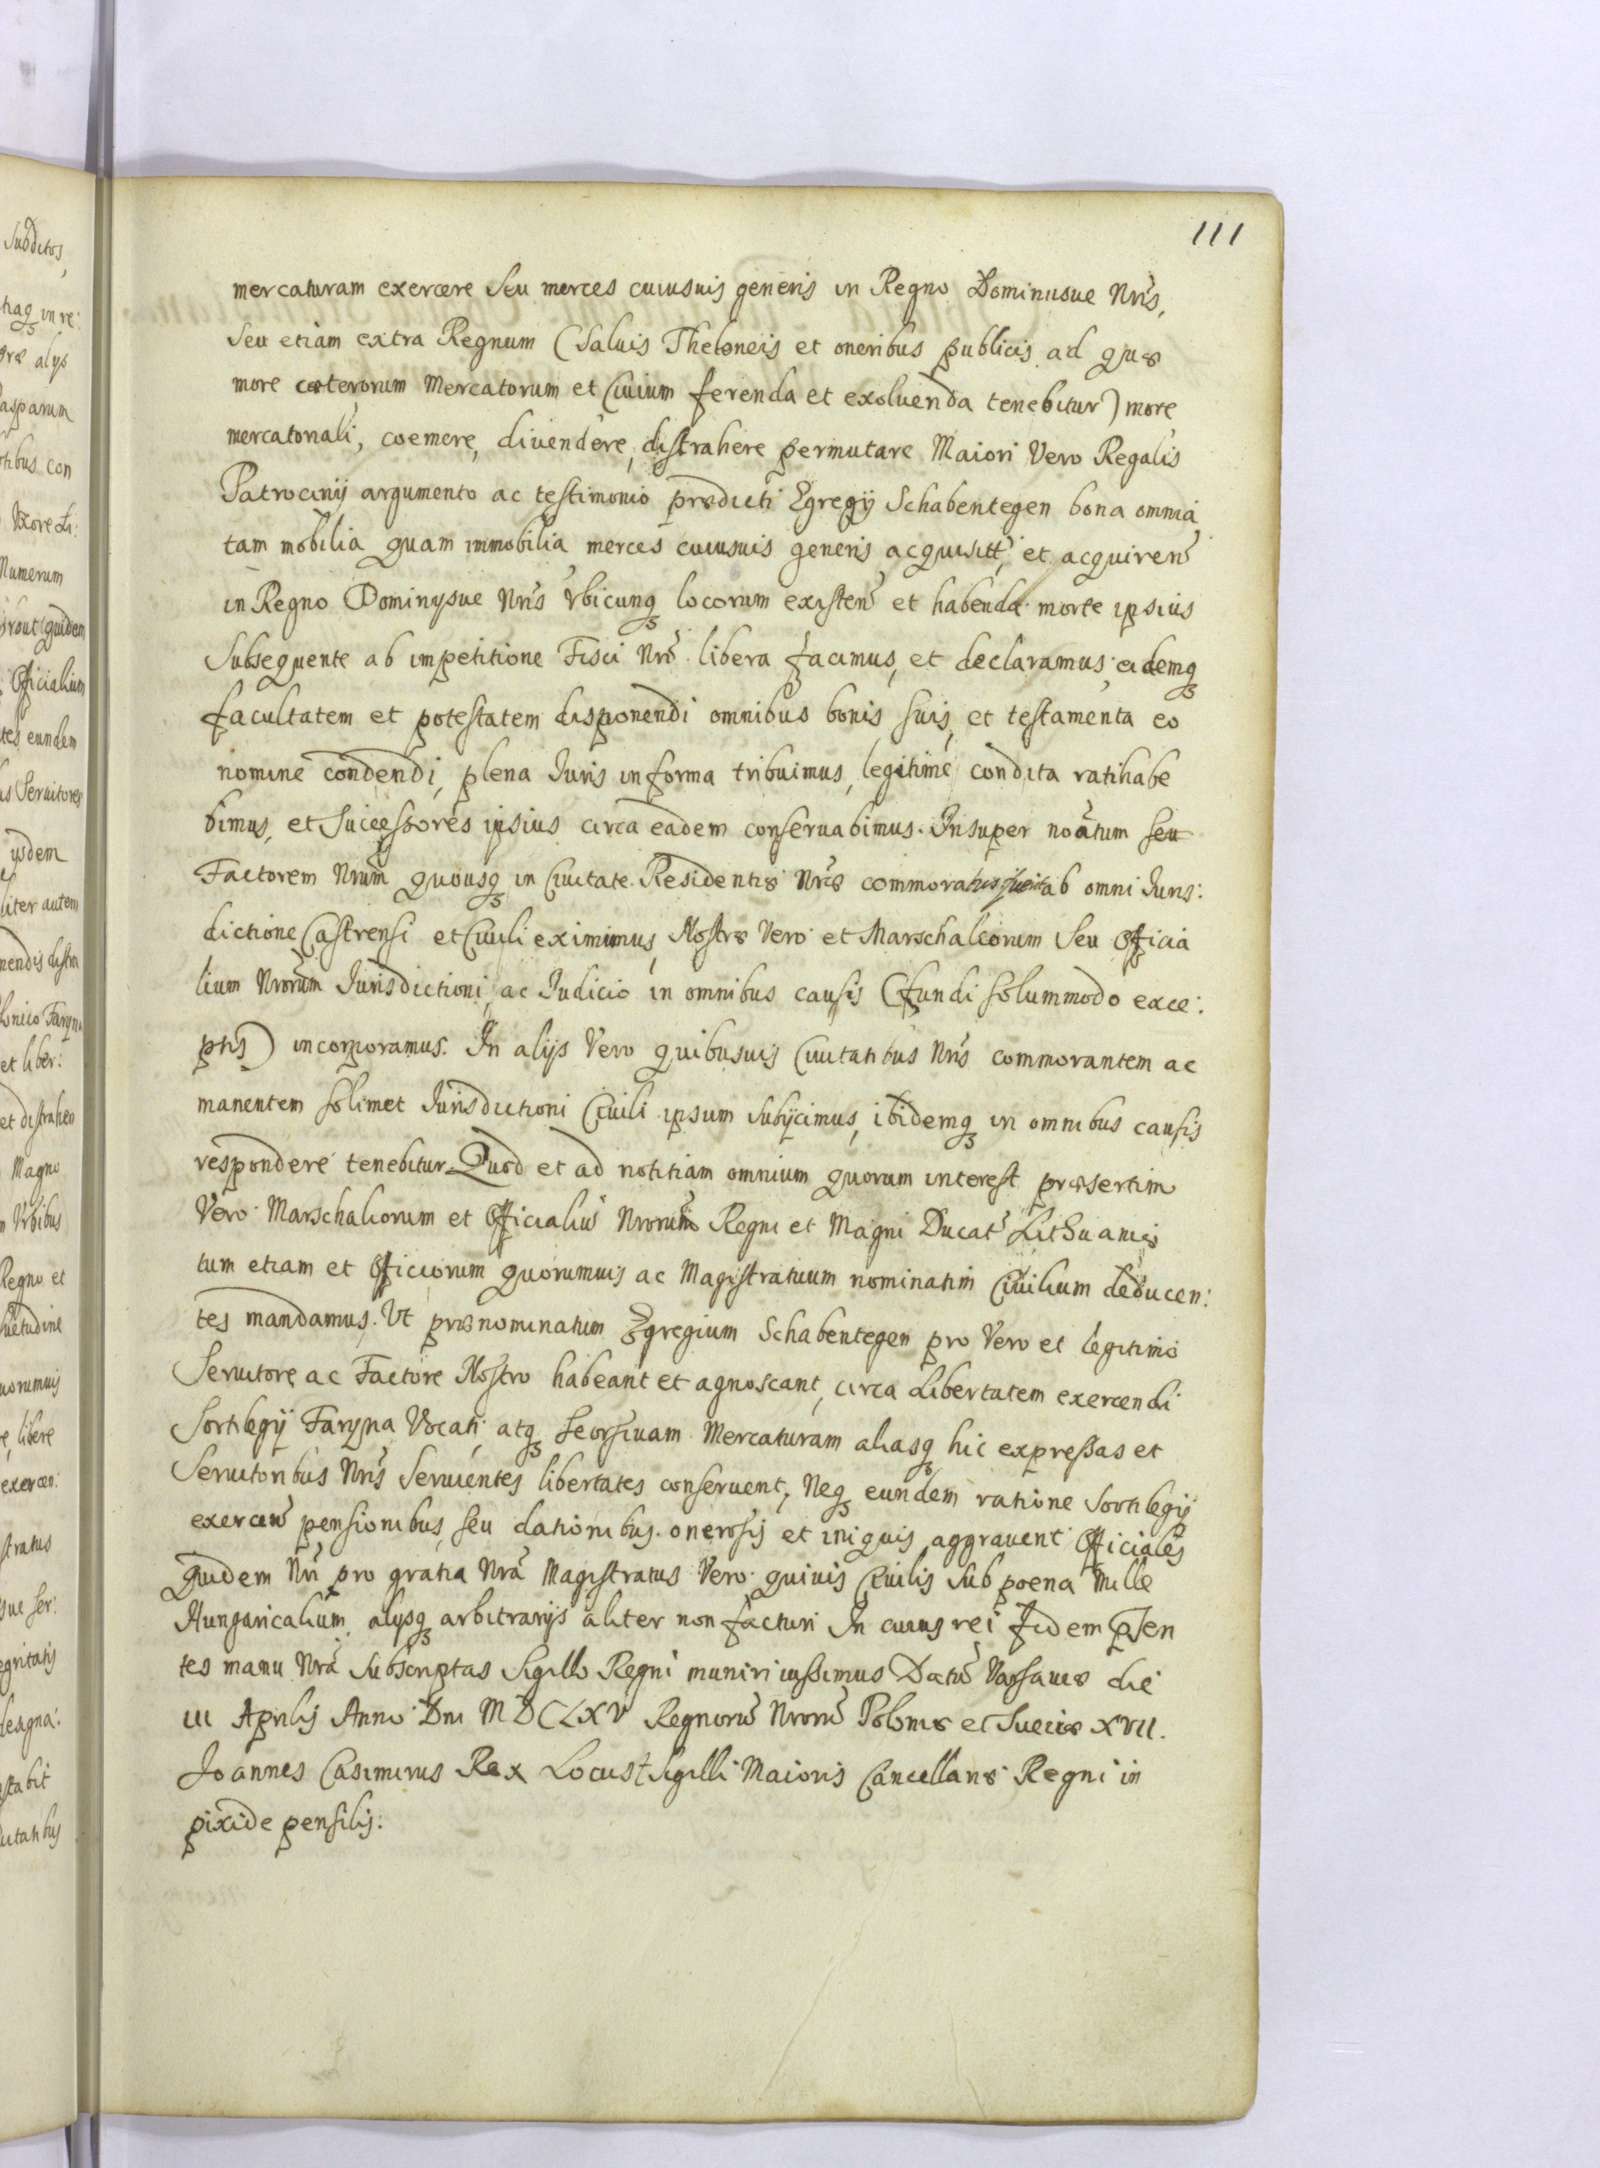 111
mercaturam exercere seu merces cuiusuis generis in Regno Dominiisue Nris,
seu etiam extra Regnum (saluis Theloneis et oneribus publicis ad quæ
more cæterorum Mercatorum et Ciuium ferenda et exoluenda tenebitur) more
mercatoriali, coemere, diuendere, distrahere permutare Maiori Vero Regalis
Patrocinij argumento ac testimonio prædicti Egregij Schabentegen bona omnia
tam mobilia quam immobilia merces cuiusuis generis acquisitt, et acquiren
in Regno Dominysue Nris vbicunq locorum existen et habenda morte ipsius
Subsequente ab impetitione Fisci Nri libera facimus, et declaramus, eidemq
facultatem et potestatem disponendi omnibus bonis suis, et testamenta eo
nomine condendi, plena Iuris in forma tribuimus, legitime condita ratihabe
bimus, et Successores ipsius circa eadem conseruabimus. Insuper noatum seu
Factorem Nrum quousq in Ciuitate Residentiæ Nræ commoratus ab omni Iuris:
dictione Castrensi et Ciuili eximimus, Nostræ Vero et Marschalcorum seu Officia
lium Nrorum Iurisdictioni, ac Iudicio in omnibus causis (fundi solummodo exce:
ptis) incorporamus. In alijs Vero quibusuis Ciuitatibus Nris commorantem ac
manentem solimet Iurisdictioni Ciuili ipsum subijcimus, ibidemq in omnibus causis
respondere tenebitur. Quod et ad notitiam omnium quorum interest præsertim
Vero Marschalcorum et Officialiu Nrorum Regni et Magni Ducat Lithuaniæ
tum etiam et Officiorum quorumuis ac Magistratuum nominatim Ciuilium deducen:
tes mandamus. Ut prænominatum Egregium Schabentegen pro Vero et legitimo
Seruitore ac Factore Nostro habeant et agnoscant, circa Libertatem exercendi
Sortilegij Faryna Vocati atq seorsiuam Mercaturam aliasq hic expressas et
Seruitoribus Nris Seruientes libertates conseruent, Neq eundem ratione Sortilegij
exercen pensionibus, seu dationibus onerosis et iniquis aggrauent Officiales
quidem Nri pro gratia Nra Magistratus Vero quiuis Ciuilis sub poena Mille
Hungaricalium, alysq arbitrarijs aliter non facturi In cuius rei fidem psen
tes manu Nra Subscriptas Sigillo Regni muniri iussimus Datu Varsauiæ die
III Aprilis Anno Dni MDCLXV Regnoru Nroru Poloniæ et Sueciæ XVII.
Joannes Casimirus Rex Locus Sigilli Maioris Cancellariæ Regni in
pixide pensilis: